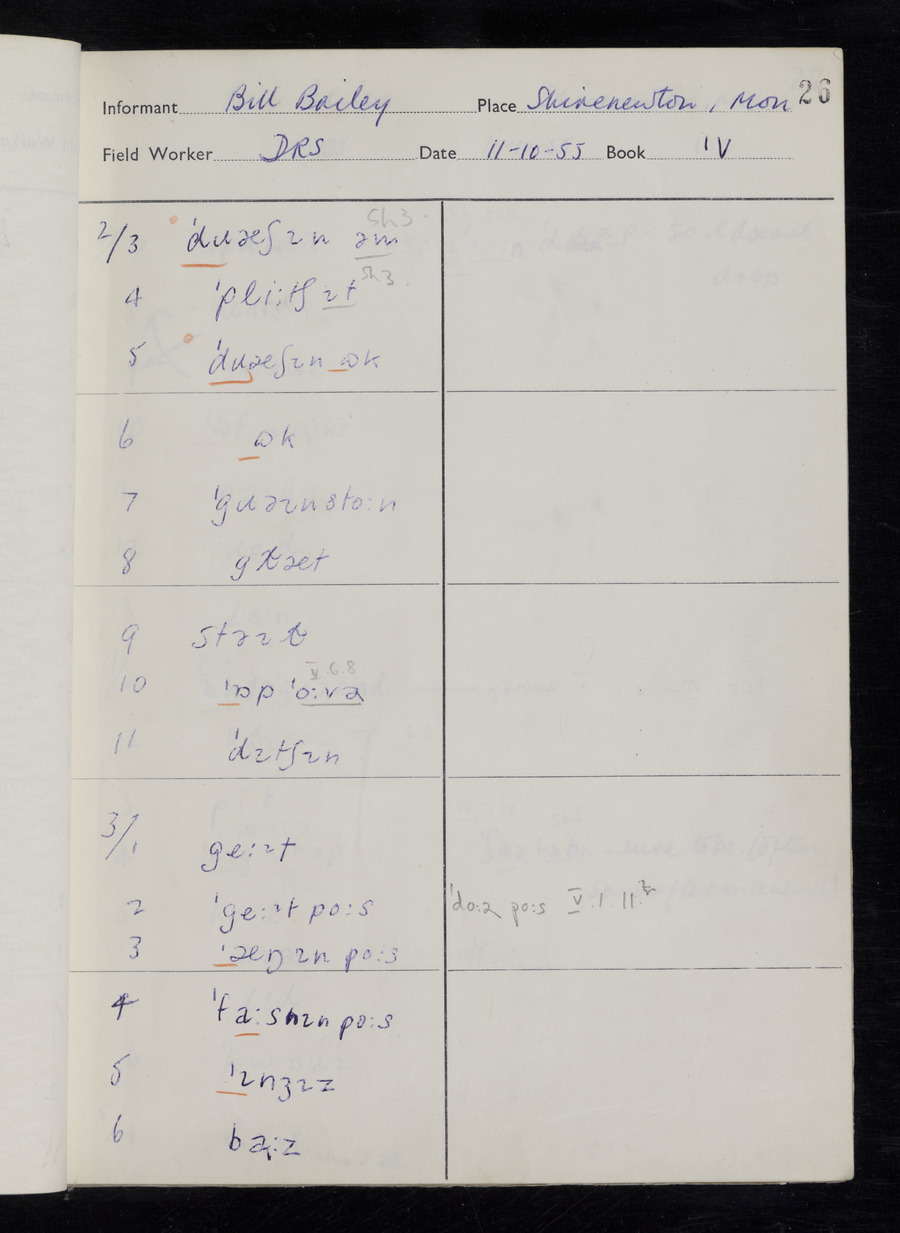 Informant Bill Bailey Place Shirenewton, Mon 26
Field Worker DRS Date 11-10-55 Book IV
Sh3.
2/3 ˈdɹæʃɪn əm
Sh3.
4 ˈpliːtʃɪt
5 ˈdɹæʃɪn ɒk
6 ɒk
7 ˈgɹəɪnstoːn
8 gɹæt
9
V.6.8
10 ˈɒp ˈoːvə
11 ˈdɪtʃɪn
3/1 geːɪt
2 ˈgeːɪt poːs ˈdoːə poːs V.1.11
3 ˈæŋɪn poːs
4 poːs
5 ˈɪnʒɪz
6